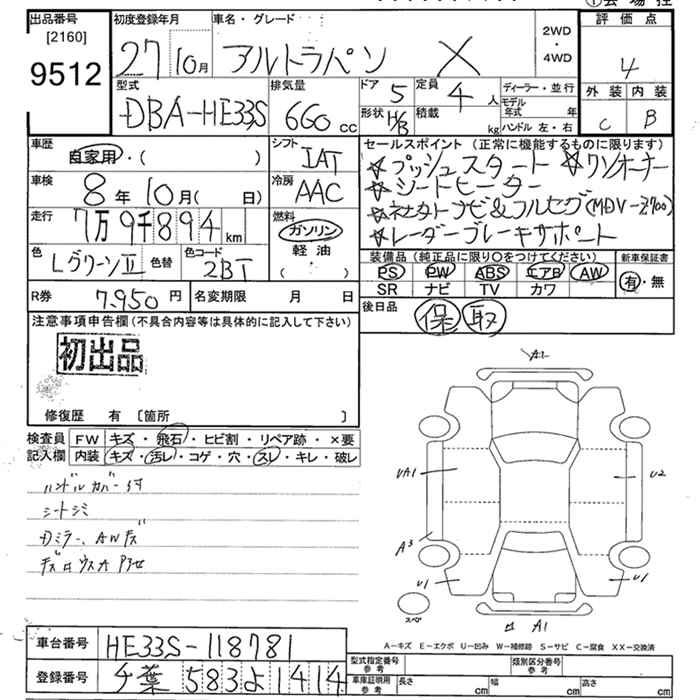 ①会場控
出品番号 初度登録年月 車名・グレード 評価点
[2160]
9512
27 10月 アルトラパン X 2WD・4WD 4
型式 排気量 ドア 定員 ディーラー・並行 外装 内装
DBA-HE33S 660cc 5 4人 モデル年式 年 C B
形状 H/B 積載 kg ハンドル 左・右
車歴 自家用・( ) シフト IAT
セールスポイント (正常に機能するものに限ります)
☆プッシュスタート ☆ワンオーナー
☆シートヒーター
☆レーダーブレーキサポート
車検 8年 10月( 日) 冷房 AAC
走行 7万9千894km 燃料 ガソリン 軽油 ( )
色 LグリーンII 色替 色コード 2BT
装備品 (純正品に限り○をつけてください) 新車保証書
PS PW ABS エアB AW 有・無
SR ナビ TV カワ
R券 7,950円 名変期限 月 日
後日品 保 取
注意事項申告欄 (不具合内容等は具体的に記入して下さい)
初出品
修復歴 有 [箇所 ]
検査員 FW キズ・飛石・ヒビ割・リペア跡・×要
記入欄 内装 キズ・汚レ・コゲ・穴・スレ・キレ・破レ
ハンドルカバー付
シートシミ
Dミラー、AWキズ
A1
UA1 U2
A3
U1 U1
スペア
A1
A-キズ E-エクボ U-凹み W-補修跡 S-サビ C-腐食 XX-交換済
車台番号 HE33S-118781
登録番号 千葉 583 よ 1414
型式指定番号 参考 類別区分番号 参考
車庫証明用 参考 長さ cm 幅 cm 高さ cm